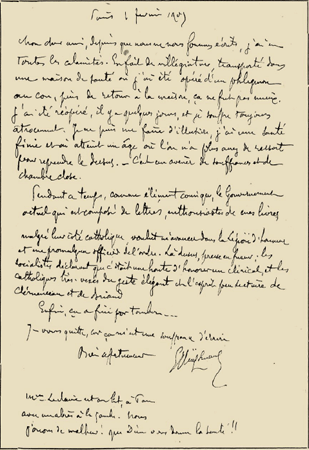 Paris 1 février 1907
Mon cher ami, depuis que nous ne nous sommes écrits, j'ai eu
toutes les calamités. En fait de villégiature, transporté dans
une maison de santé où j'ai été opéré d'un phlegmon
au cou, puis, de retour à la maison, ça ne fut pas mieux.
J'ai été réopéré, il y a quelques jours, et je souffre toujours
atrocement. Je ne puis me faire d'illusion, j'ai une santé
finie et on atteint un âge où l'on n'a plus assez de ressort
pour reprendre le dessus. — C'est un avenir de souffrances et de
chambre close.
Pendant ce temps, comme élément comique, le Gouvernement
actuel qui est composé de lettrés, enthousiastes de mes livres
malgré leur côté catholique voulut m'avancer dans la Légion d'honneur
et me promulgua officier de l'ordre. Là-dessus, presse en fureur; les
socialistes déclarent que c'était une honte d'honorer un clérical, et les
catholiques très vexés du geste élégant et de l'esprit peu sectaire de
Clémenceau et de Briand
Enfin, ça a fini par tomber —
Je vous quitte, car ça m'est une souffrance d'écrire
Bien affectueusement
Huysmans
Mme Leclaire est au lit, à
avec un abcès à la gorge. Nous
jouons de malheur! que Dieu vous donne la santé!!